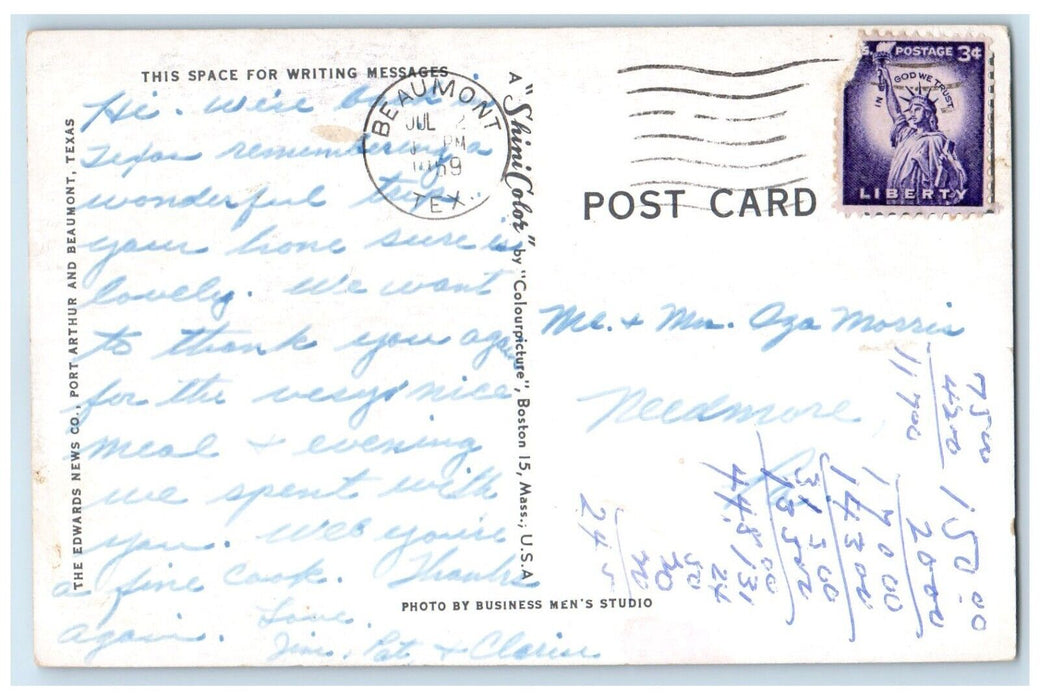 THIS SPACE FOR WRITING MESSAGES
Hi. We're back in
Texas remembering a
wonderful trip.
your home sure is
lovely. We want
to thank you again
for the very nice
meal & evening
we spent with
you. Wes you're
a fine cook. Thanks
again. Love.
Jim, Pat, & Clarice
THE EDWARDS NEWS CO., PORT ARTHUR AND BEAUMONT, TEXAS
A "ShiniColor" by "Colourpicture", Boston 15, Mass.; U.S.A
PHOTO BY BUSINESS MEN'S STUDIO
BEAUMONT
JUL 2
PM
1959
TEX.
U.S. POSTAGE 3¢
IN GOD WE TRUST
LIBERTY
POST CARD
Mr. & Mrs. Oza Morris
Needmore,
7500
4200
11700
150.00
2000
17000
14300
24